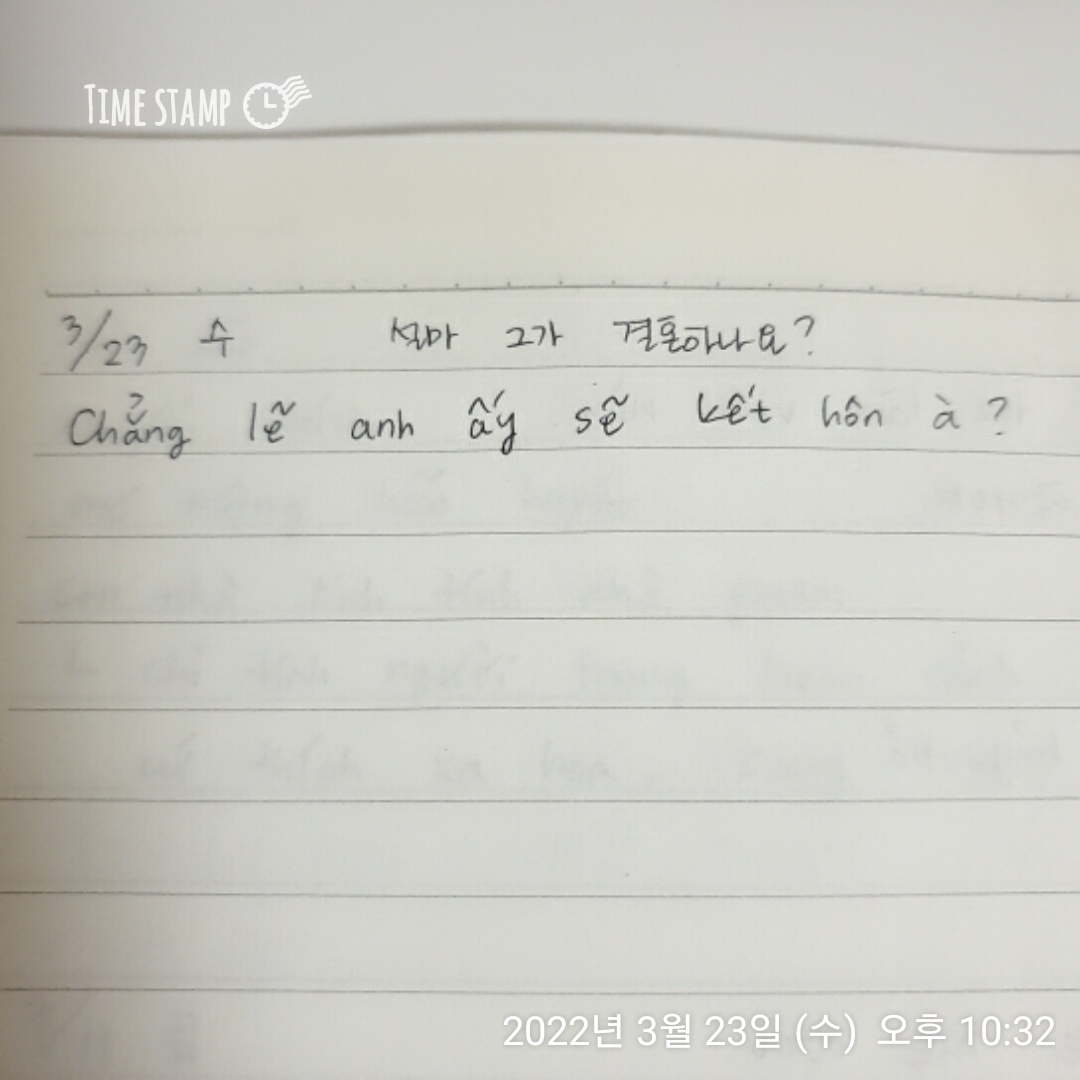 TIME STAMP
3/23 수 설마 그가 결혼하나요?
Chẳng lẽ anh ấy sẽ kết hôn à?
2022년 3월 23일 (수) 오후 10:32